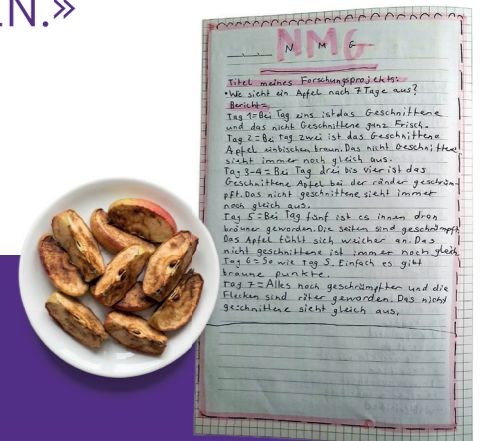 EN.»
N M G
NMG
Titel meines Forschungsprojekts:
• Wie sieht ein Apfel nach 7 Tage aus?
Bericht=
Tag 1= Bei Tag eins ist das Geschnittene
und das nicht Geschnittene ganz Frisch.
Tag 2= Bei Tag zwei ist das Geschnittene
Apfel einbischen braun. Das nicht Geschnittene
sieht immer noch gleich aus.
Tag 3-4= Bei Tag drei bis Vier ist das
Geschnittene Apfel bei der ränder geschräm-
pft. Das nicht geschnittene sieht immer
noch gleich aus.
Tag 5= Bei Tag fünf ist es innen dran
bräuner geworden. Die seiten sind geschrümpft.
Das Apfel fühlt sich weicher an. Das
nicht geschnittene ist immer noch gleich
Tag 6= So wie Tag 5. Einfach es gibt
braune punkte.
Tag 7= Alles noch geschrümpfter und die
Flecken sind röter geworden. Das nicht
geschnittene sieht gleich aus.